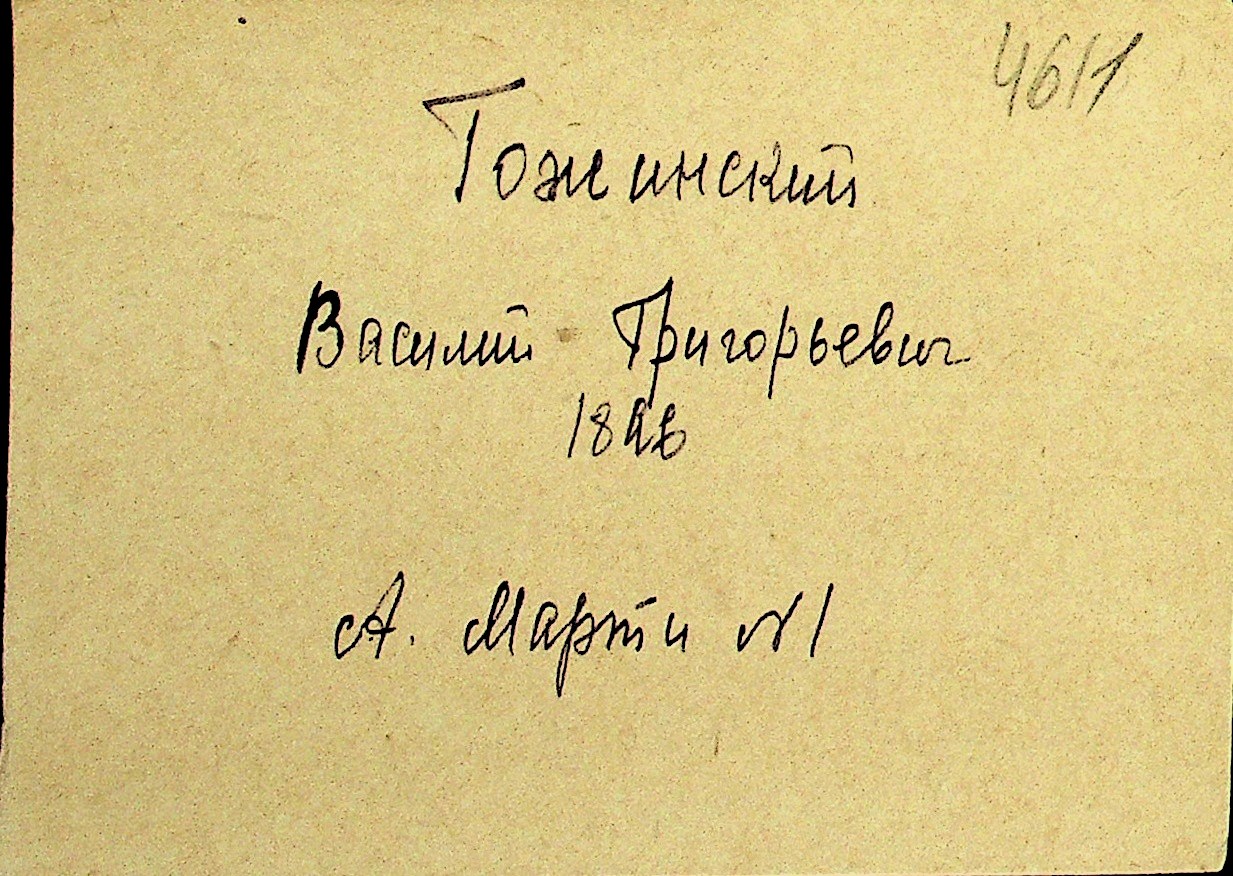 4611
Гожинский
Василий Григорьевич
А. Марти №1